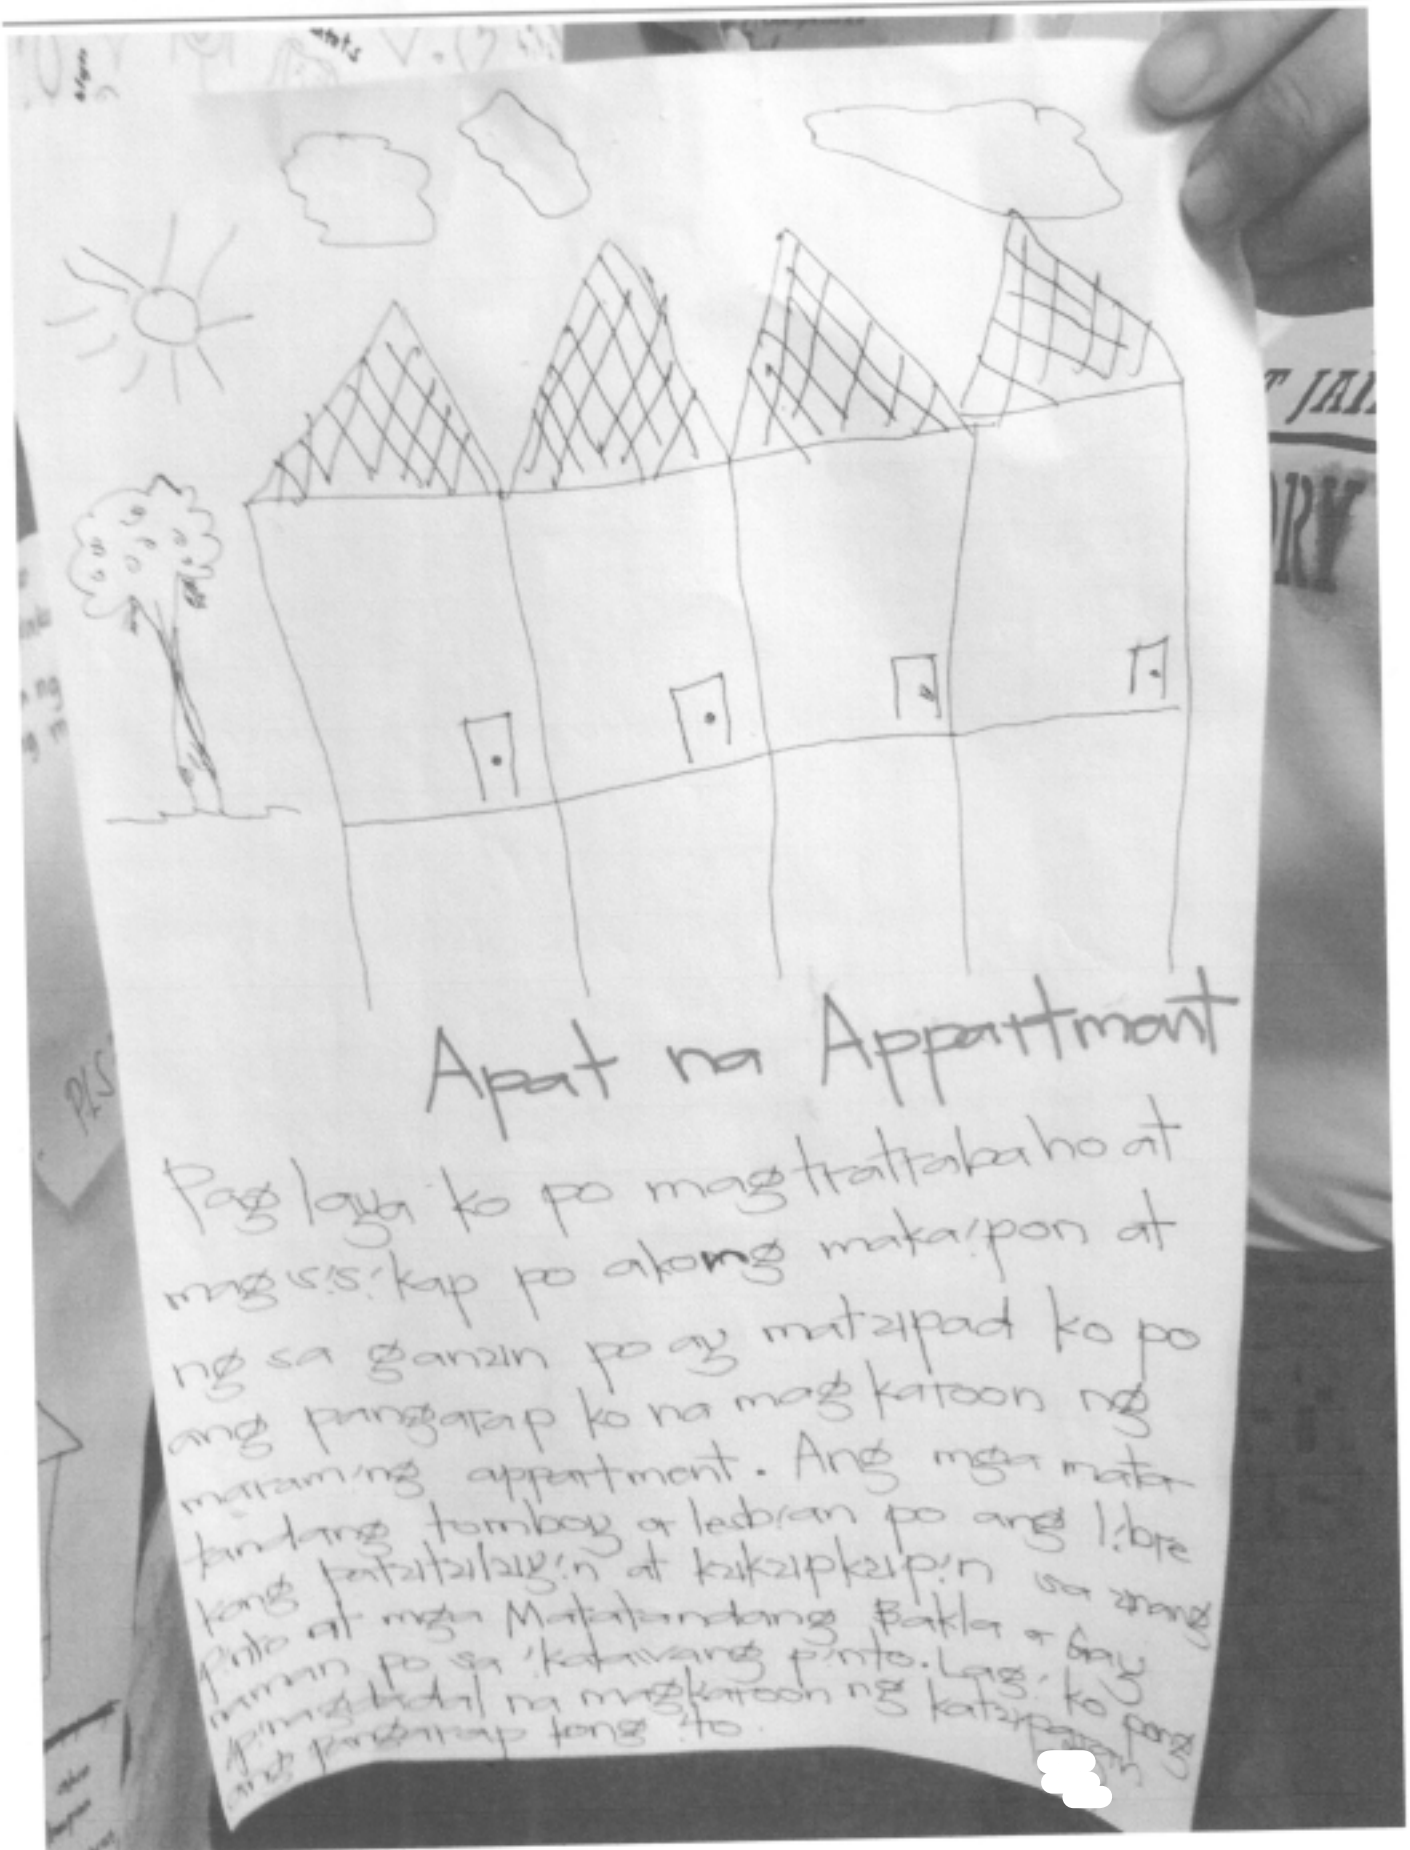 Apat na Appartment
Pag laya ko po magtratrabaho at
magsisikap po akong makaipon at
ng sa ganun po ay matupad ko po
ang pangarap ko na magkaroon ng
maraming appartment. Ang mga mata
tandang tomboy or lesbian po ang libre
kong patutuluyin at kukupkupin sa unang
pinto at mga Matatandang Bakla or Gay
naman po sa ikalawang pinto. Lagi ko pong
ipinagdadal na magkaroon ng katuparan
ang pangarap kong 'to.
T JAIL
RY
PLS